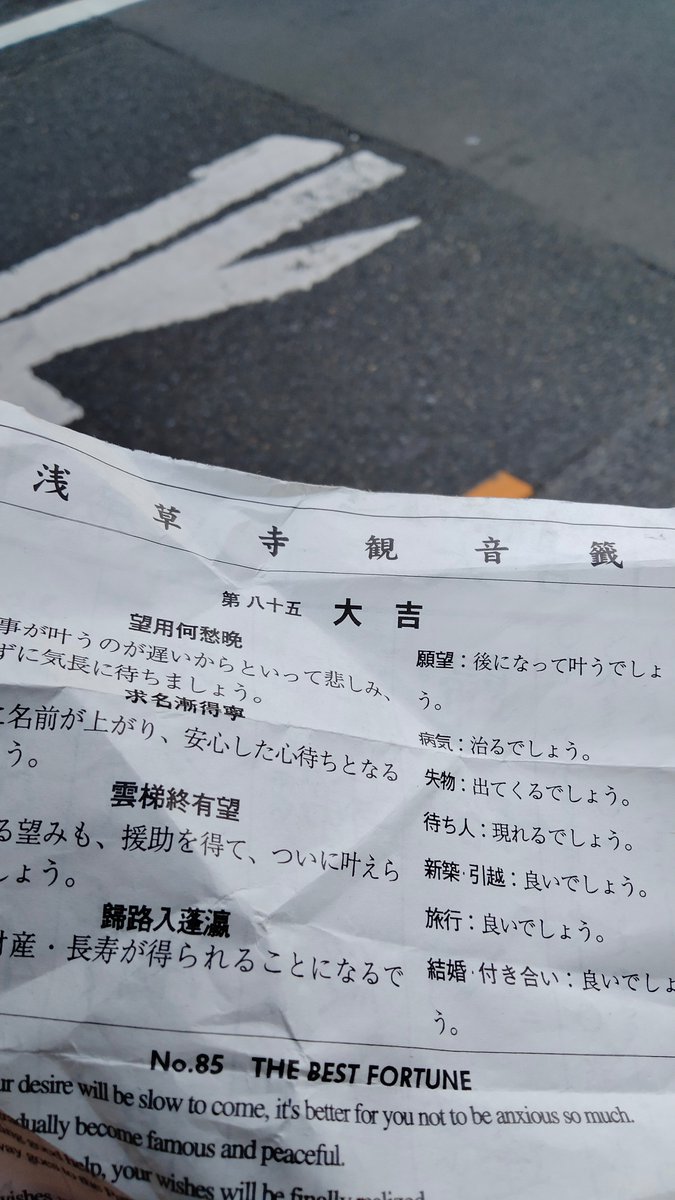 浅草寺観音籤
第八十五 大吉
望用何愁晩
事が叶うのが遅いからといって悲しみ、
ずに気長に待ちましょう。
求名漸得寧
名前が上がり、安心した心待ちとなる
う。
雲梯終有望
る望みも、援助を得て、ついに叶えら
しょう。
歸路入蓬瀛
財産・長寿が得られることになるで
願望：後になって叶うでしょ
う。
病気：治るでしょう。
失物：出てくるでしょう。
待ち人：現れるでしょう。
新築·引越：良いでしょう。
旅行：良いでしょう。
結婚·付き合い：良いでしょ
う。
No.85 THE BEST FORTUNE
ur desire will be slow to come, it's better for you not to be anxious so much.
dually become famous and peaceful.
help, your wishes will be finally realized